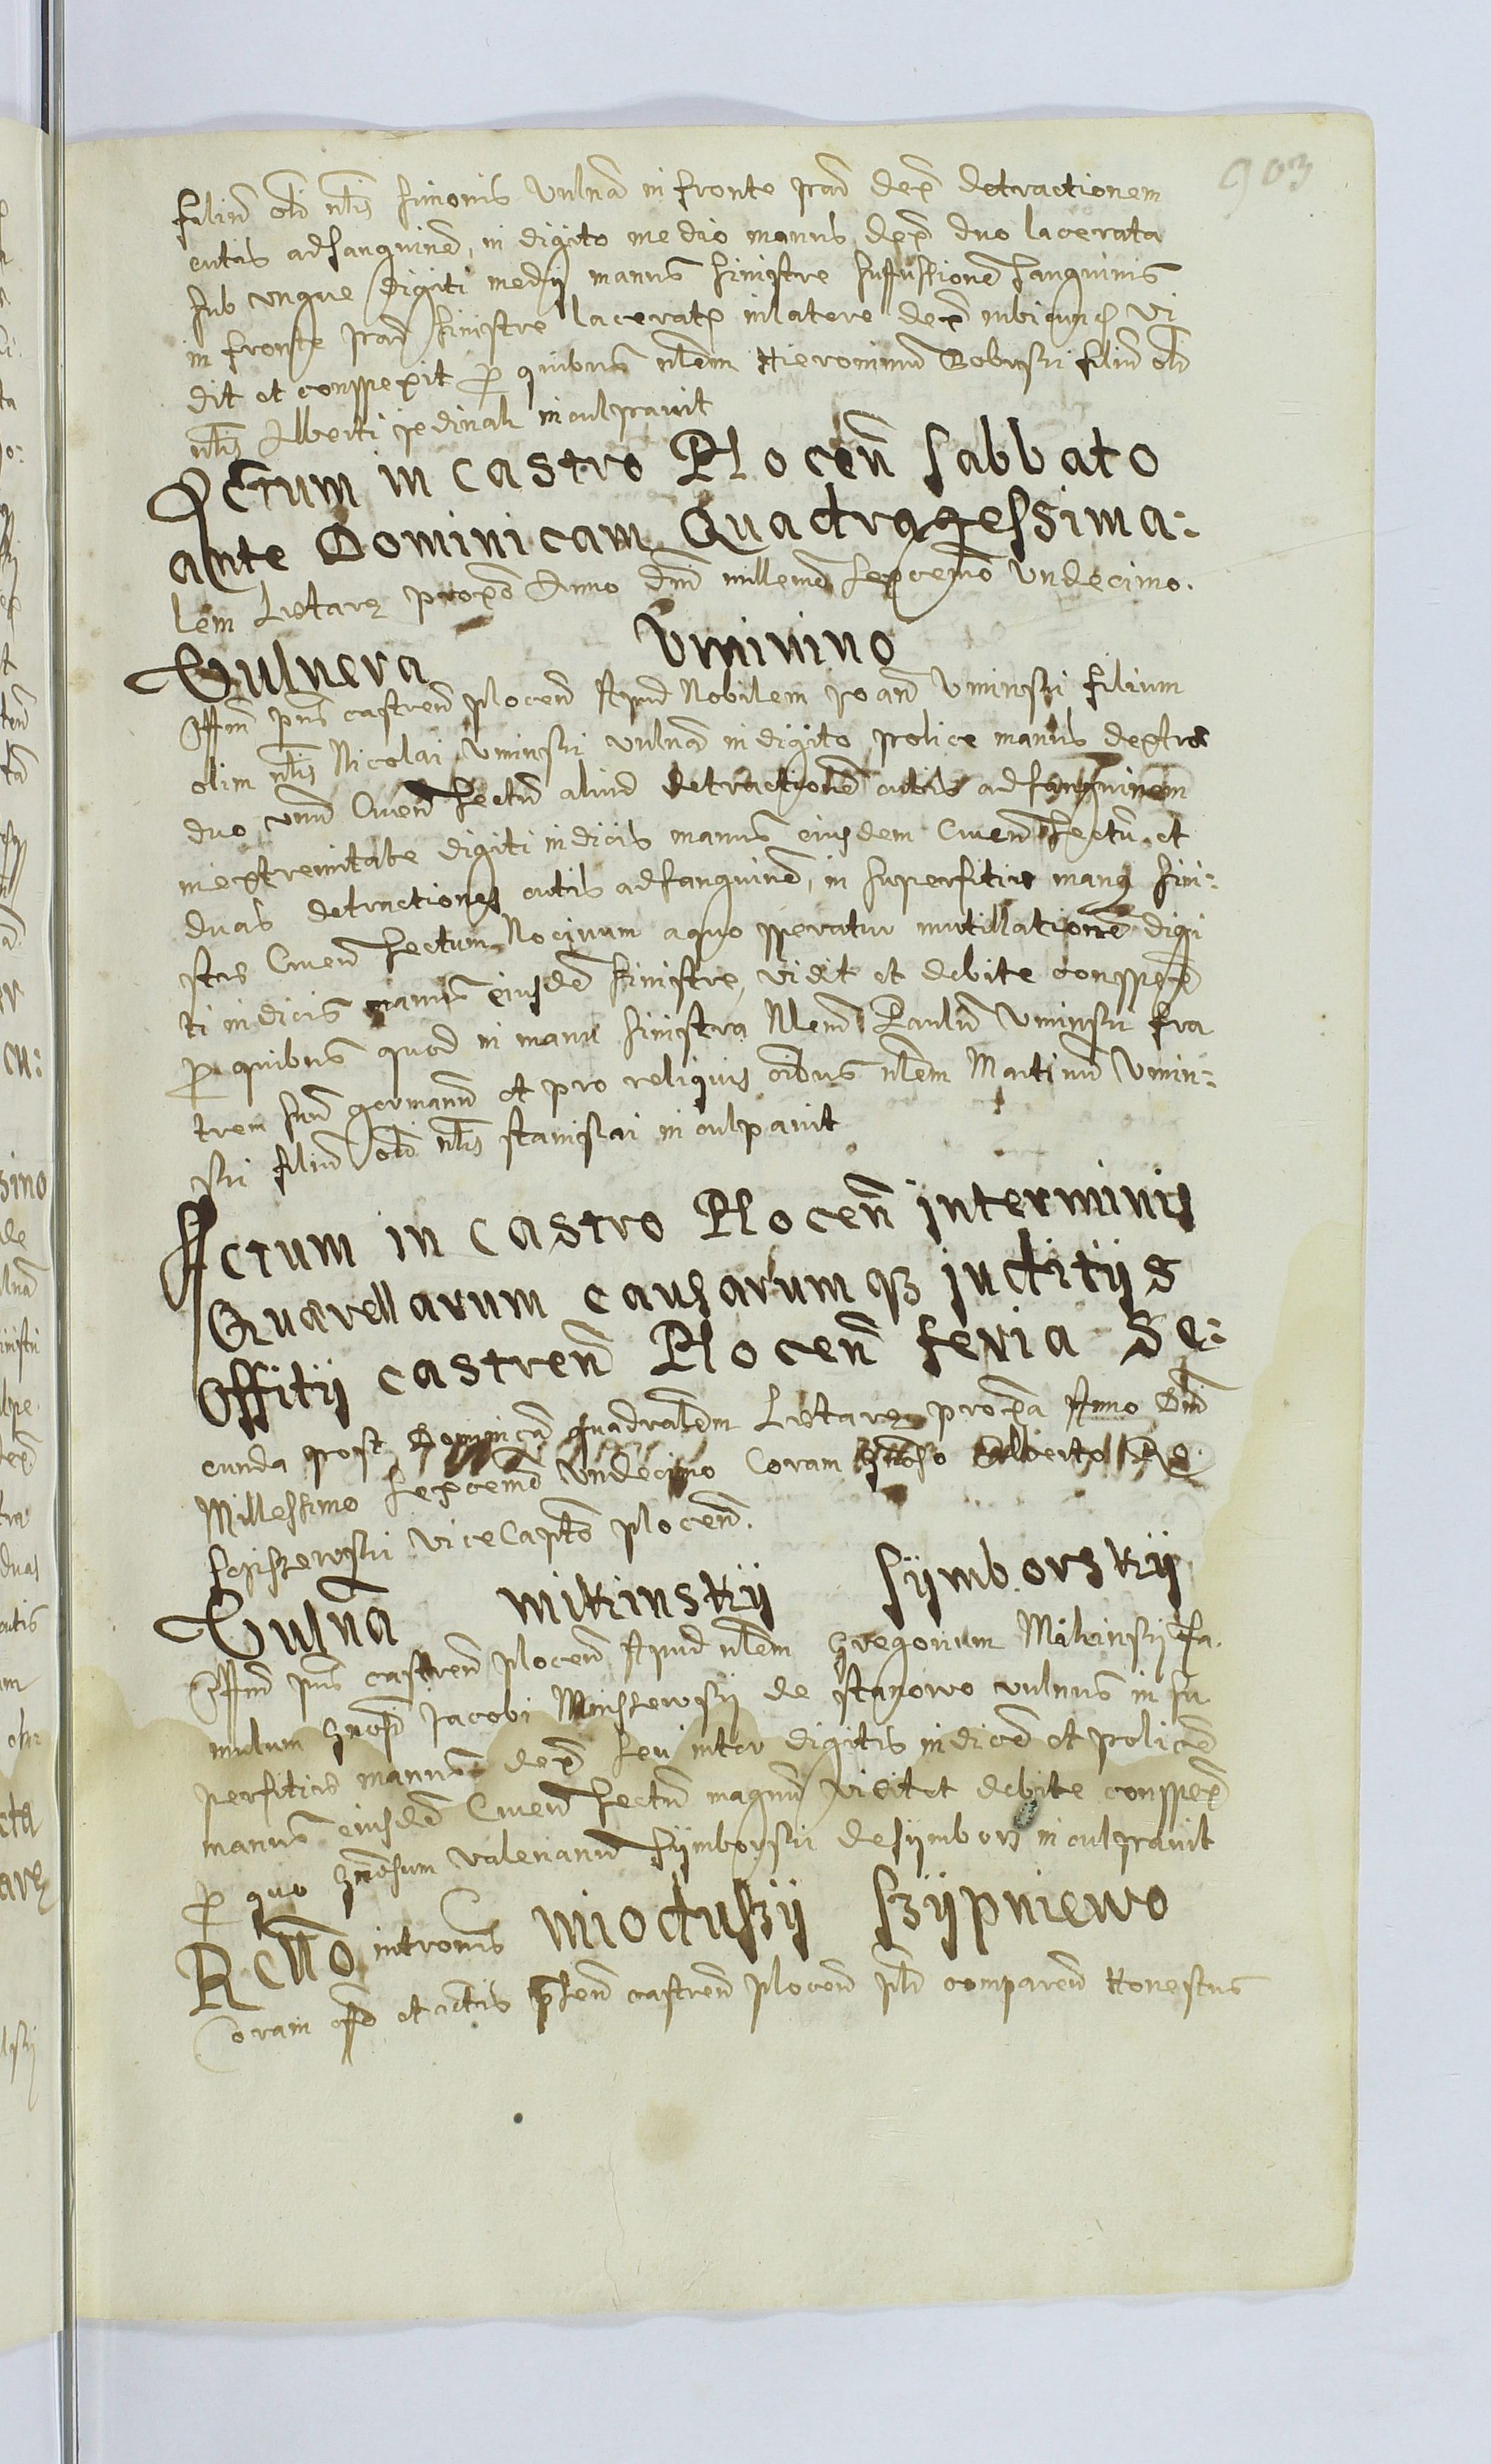 903
filiū olī nlis Simonis Vulnā in fronte ꝑad dex detractionem
cutis ad sanguinē, in digito medio manus dex duo lacerata
sub ungue digiti medij manus sinistre suffussionē sanguinis
in fronte sinistre lacerat in latere dex vi
dit et conspexit ꝓ quibus nlem Hieronimū Gobrski filiū olī
nlis Alberti inculpavit
Actum in Castro Plocen̄ sabbato
ante Dominicam Quadragessima:
lem Lætare proxō Anno Dnī millemo sexcemo Undecimo.
Vulnera Uminino
Offm pns castren̄ plocen̄ Apud Nobilem Joan̄ Uminski filium
olim nlis Nicolai Uminski vulnā in digito police manus dextræ
duo unū Cruen̄ sectū aliud detractionē cutis ad sanguinem
in extremitate digiti indicis manus eiusdem Cruen̄ sectū et
duas detractiones cutis ad sanguinē, in superfitie manq sini:
stre Cruen̄ sectum Nocivum a quo speratur mutillationē digi
ti indicis manus eiusdē sinistre, vidit et debite conspex
ꝓ quibus quod in manu sinistra Nlem Paulū Uminski fra
trem suū germanū et pro reliquis oibus nlem Martinū Umin:
ski filiū olī nlis Stanislai inculpavit
Actum in Castro Plocen̄ in terminis
Quærellarum causarumqʒ juditijs
Offitij castren̄ Plocen̄ feria Se:
cunda post Dominicā quadralem Lætare proxa Anno Dnī
Millessimo sexcemo Undecimo Coram Gnoso Alberto
ViceCaptō plocen̄.
Vulnā Mikinskij Sijmborskij
Offm pns castren̄ plocen̄ Apud nlem Gregorium Mikinskij fa.
mulum Gnosi Jacobi Miszewskij de Stanowo vulnus in su
perfitie manus dex seu inter digitis indicē et policē
manus eiusdē Cruen̄ sectū magnū vidit et debite conspex
ꝓ quo Gnosum Valerianū Sijmborski de Sijmbory inculpavit
Rello intromis Mioduszij Szijpniewo
Coram offo et actis pſen̄ castren̄ plocen̄ plr comparen̄ Honestus